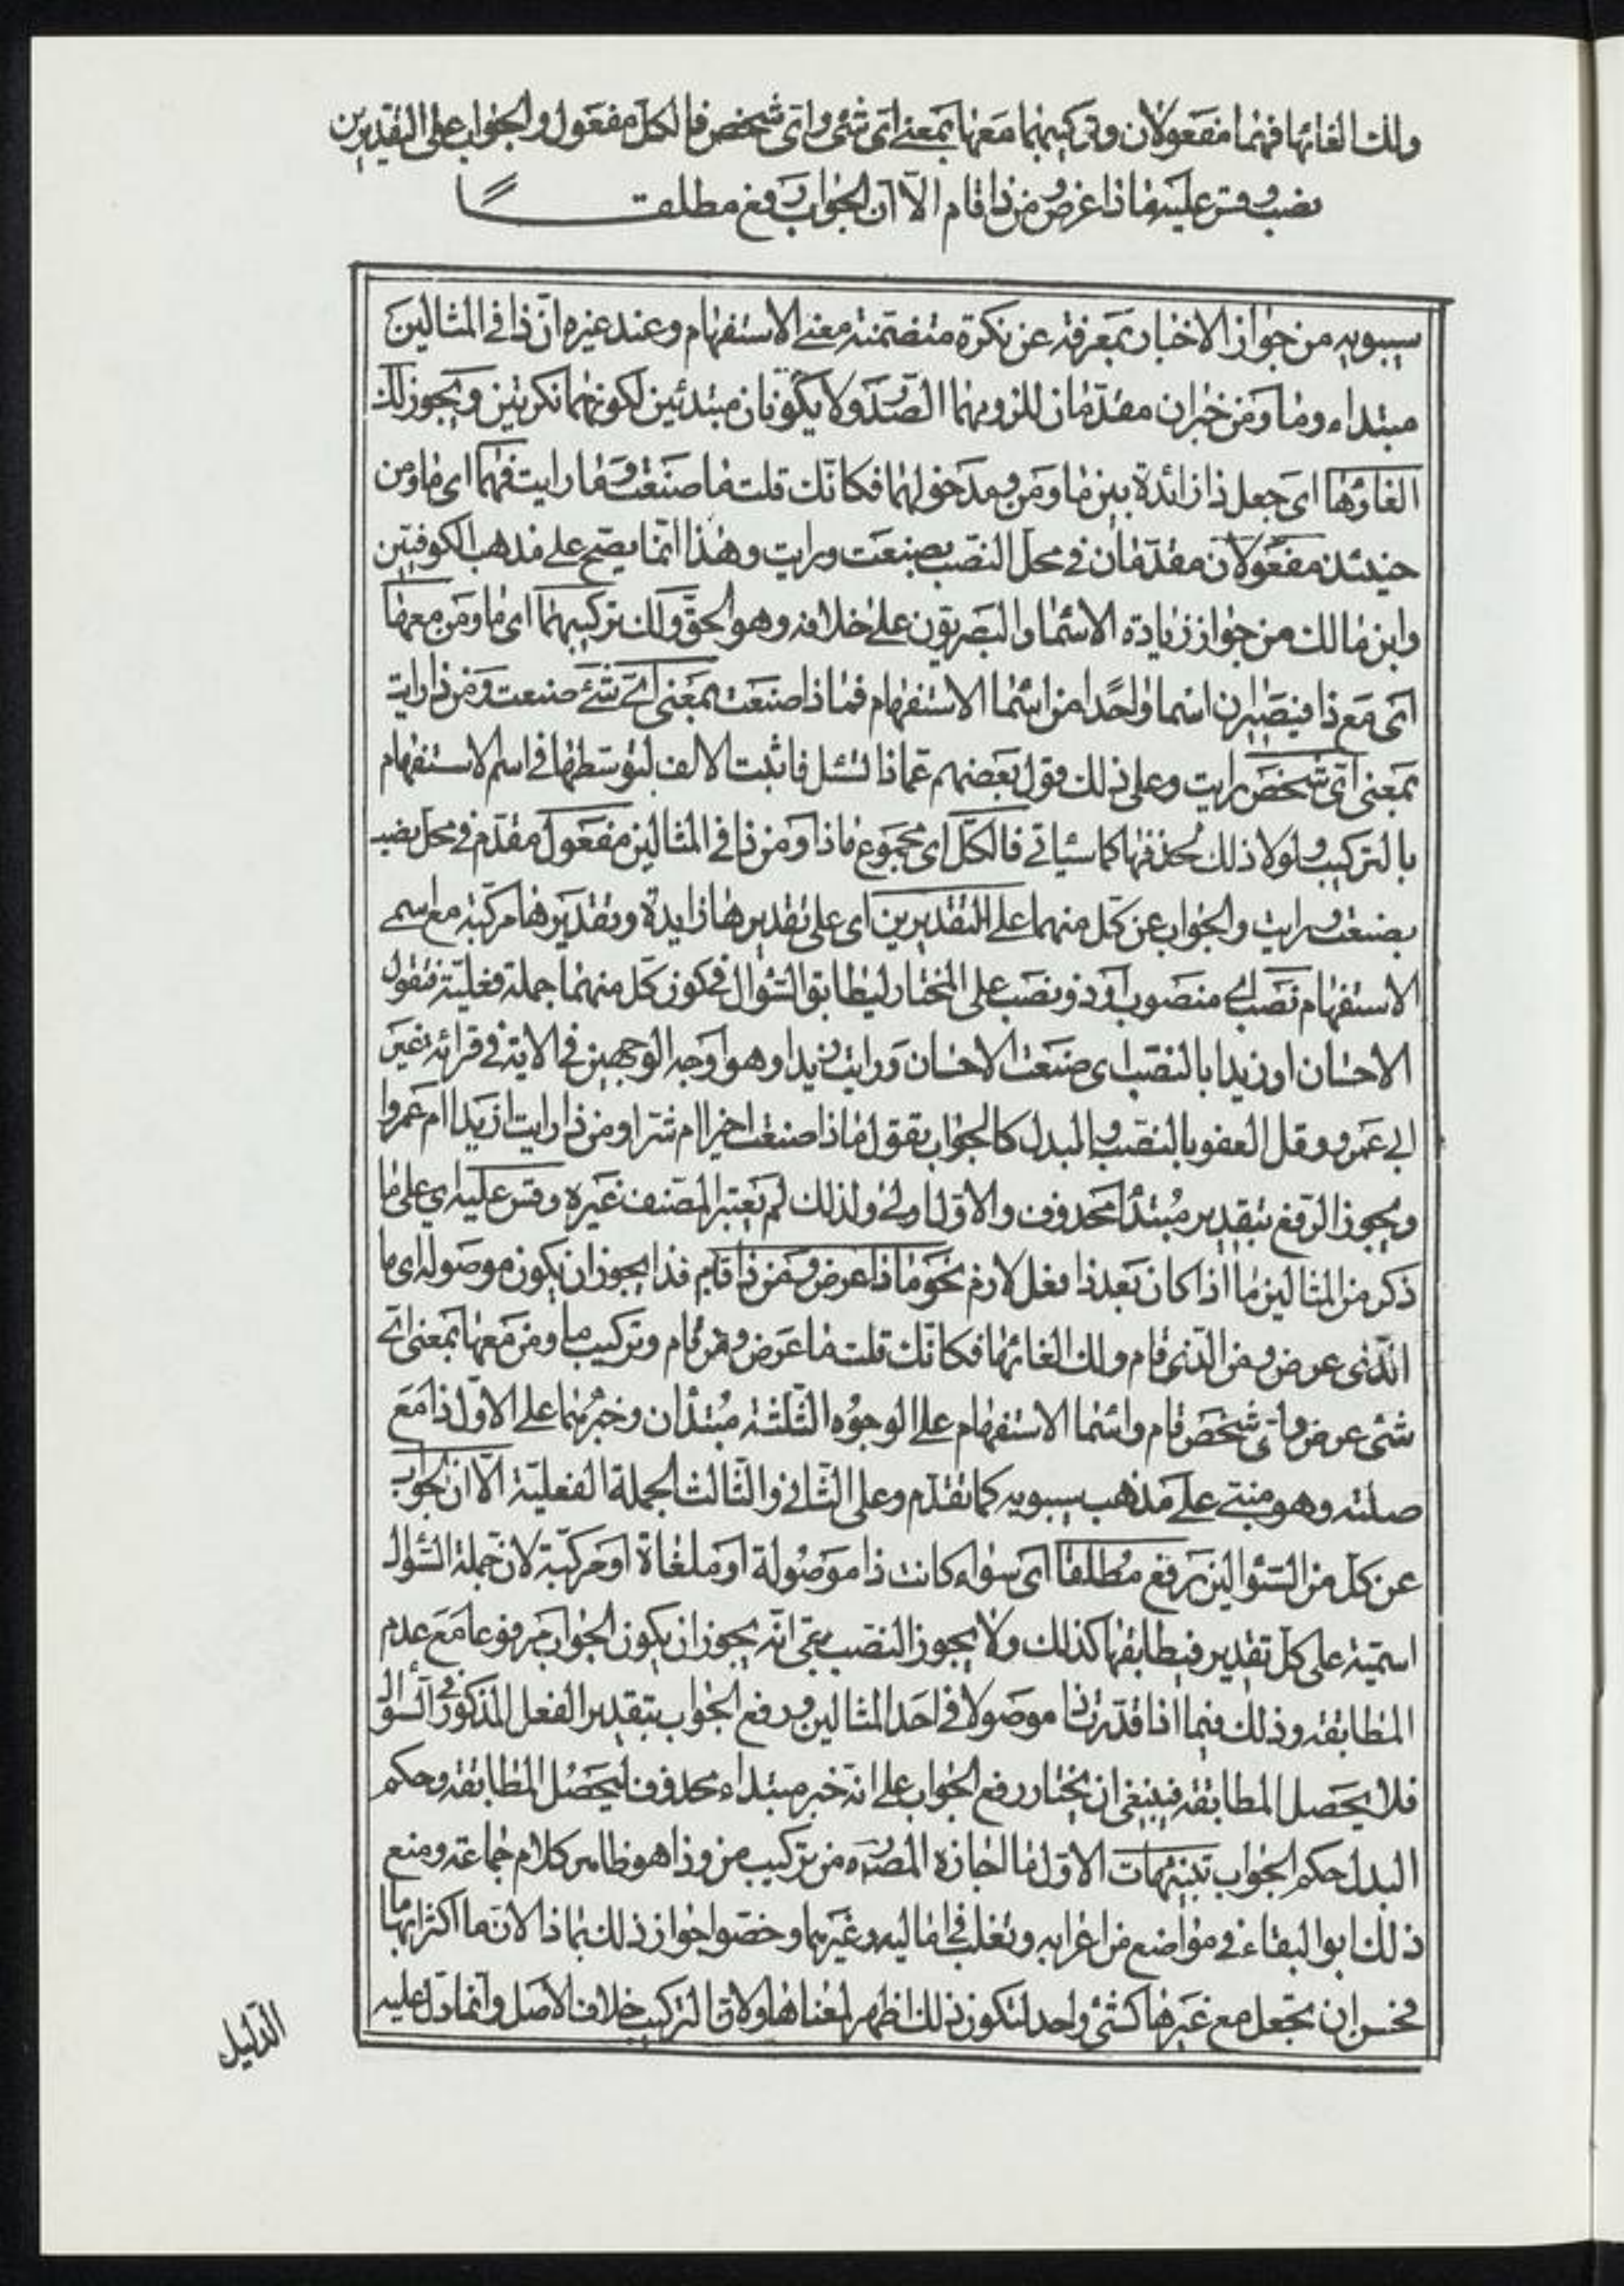 ولك الغائها فهما مفعولان وتركيبهما معها بمعنى اى شئ واى شخص فالكل مفعول والجواب على التقديرين
نصب وقس عليهما ذا عرض ومن ذا قام الا ان الجواب رفع مطلقا
سيبويه من جواز الاخبار بمعرفة عن نكرة متضمنة معنى الاستفهام وعند غيره ان ذا فى المثالين
مبتداء وما ومن خبران مقدمان للزومهما الصدر ولا يكونان مبتدئين لكونهما نكرتين ويجوز لك
الغاؤها اى جعل ذا زائدة بين ما ومن ومدخولهما فكانك قلت ما صنعت وما رايت فهما اى ما ومن
حينئذ مفعولان مقدمان فى محل النصب بصنعت ورايت وهذا انما يصح على مذهب الكوفيين
وابن مالك من جواز زيادة الاسما والبصريون على خلافه وهو الحق ولك تركيبهما اى ما ومن معها
اى مع ذا فيصيران اسما واحدا من اسما الاستفهام فماذا صنعت بمعنى اى شئ صنعت ومن ذا رايت
بمعنى اى شخص رايت وعلى ذلك قول بعضهم عماذا تسئل فاثبت الالف لتوسطها فى اسم الاستفهام
بالتركيب ولولا ذلك لحذفها كما سياتى فالكل اى مجموع ماذا ومن ذا فى المثالين مفعول مقدم فى محل نصب
بصنعت ورايت والجواب عن كل منهما على التقديرين اى على تقديرها زايدة وتقديرها مركبة مع اسمى
الاستفهام نصب اى منصوب او ذو نصب على المختار ليطابق السؤال فى كون كل منهما جملة فعلية فتقول
الاحسان او زيدا بالنصب اى صنعت الاحسان ورايت زيدا وهو اوجه الوجهين فى الاية فى قرائة غير
ابى عمرو وقل العفو بالنصب والبدل كالجواب تقول ماذا صنعت اخيرا ام شرا ومن ذا رايت ازيدا ام عمروا
ويجوز الرفع بتقدير مبتدأ محذوف والاول اولى ولذلك لم يعتبر المصنف غيره وقس عليه اى على ما
ذكر من المثالين ما اذا كان بعد ذا فعل لازم نحو ماذا عرض ومن ذا قام فذا يجوز ان يكون موصولة اى ما
الذى عرض ومن الذى قام ولك الغائها فكانك قلت ما عرض ومن قام وتركيب ما ومن معها بمعنى اى
شئ عرض واى شخص قام واسما الاستفهام على الوجوه الثلثة مبتدان وخبرهما على الاول ذا مع
صلته وهو مبنى على مذهب سيبويه كما تقدم وعلى الثانى والثالث الجملة الفعلية الا ان الجواب
عن كل من السؤالين رفع مطلقا اى سواء كانت ذا موصولة او ملغاة او مركبة لان جملة السؤال
اسمية على كل تقدير فيطابقها كذلك ولا يجوز النصب بقى انه يجوز ان يكون الجواب مرفوعا مع عدم
المطابقة وذلك فيما اذا قدرنا ذا موصولا فى احد المثالين ورفع الجواب بتقدير الفعل المذكور فى السؤال
فلا يحصل المطابقة فينبغى ان يختار رفع الجواب على انه خبر مبتداء محذوف ليحصل المطابقة وحكم
البدل حكم الجواب تنبيهات الاول ما اجازه المص ره من تركيب من وذا هو ظاهر كلام جماعة ومنع
ذلك ابو البقاء فى مواضع من اعرابه وثعلب فى اماليه وغيرهما وخصوا جواز ذلك بماذا لان ما اكثر ابهاما
فحسن ان تجعل مع غيرها كشئ واحد لتكون ذلك اظهر لمعناها ولان التركيب خلاف الاصل وانما دل عليه
الدليل